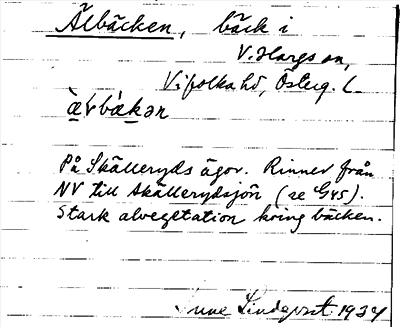 Älbäcken, bäck i
V. Hargs sn,
Vifolka hd, Österg. l.
æ̀ɽbækən
På Skälleryds ägor. Rinner från
NV till Skällerydsjön (se G45).
Stark alvegetation kring bäcken.
Sune Lindqvist 1934